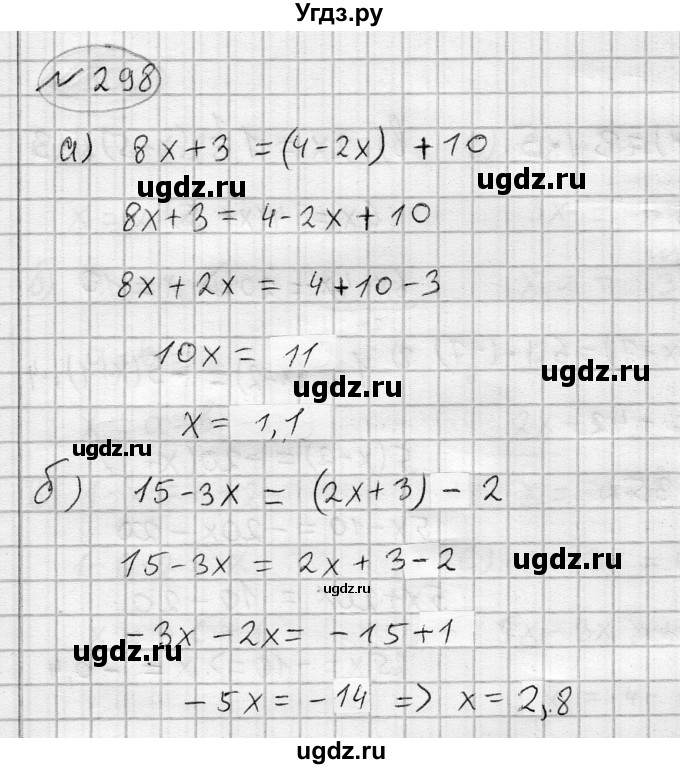 Угдз.ру
№ 298
а) 8x+3 = (4-2x) +10
ugdz.ru ugdz.ru
8x+3 = 4-2x+10
8x+2x = 4+10-3
10x = 11
ugdz.ru ugdz.ru
x = 1,1
ugdz.ru
б) 15-3x = (2x+3) - 2
ugdz.ru
15-3x = 2x+3-2
ugdz.ru
ugdz.ru
-3x-2x = -15+1
ugdz.ru ugdz.ru
-5x = -14 => x = 2,8
ugdz.ru